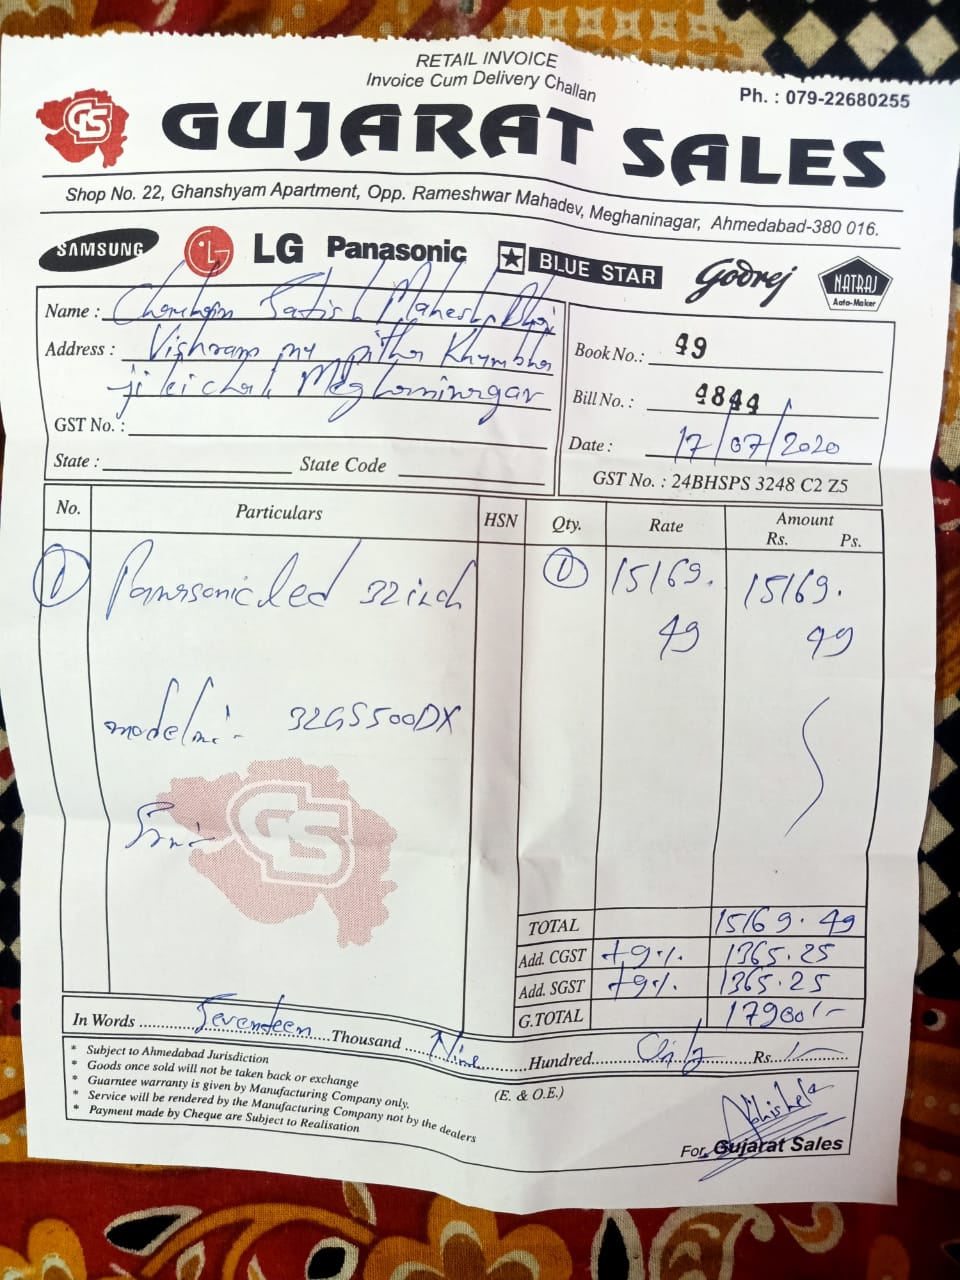 RETAIL INVOICE
Invoice Cum Delivery Challan
Ph. : 079-22680255
GS
GUJARAT SALES
Shop No. 22, Ghanshyam Apartment, Opp. Rameshwar Mahadev, Meghaninagar, Ahmedabad-380 016.
SAMSUNG LG LG Panasonic BLUE STAR Godrej NATRAJ Atta-Maker
Name : Satish Maheshbhai
Address : Vishram
Meghaninagar
GST No. :
State : State Code
Book No.: 49
Bill No. : 4844
Date : 17/07/2020
GST No. : 24BHSPS 3248 C2 Z5
No. Particulars HSN Qty. Rate Amount
Rs. Ps.
1 Panasonic led 32 inch 1 15169. 15169.
49 49
model no:- 32GS500DX
GS
TOTAL 15169.49
Add. CGST +9% 1365.25
Add. SGST +9% 1365.25
G.TOTAL 17900/-
In Words Seventeen Thousand Nine Hundred Only Rs. /-
* Subject to Ahmedabad Jurisdiction
* Goods once sold will not be taken back or exchange
* Guarntee warranty is given by Manufacturing Company only.
* Service will be rendered by the Manufacturing Company not by the dealers
* Payment made by Cheque are Subject to Realisation
(E. & O.E.)
For, Gujarat Sales